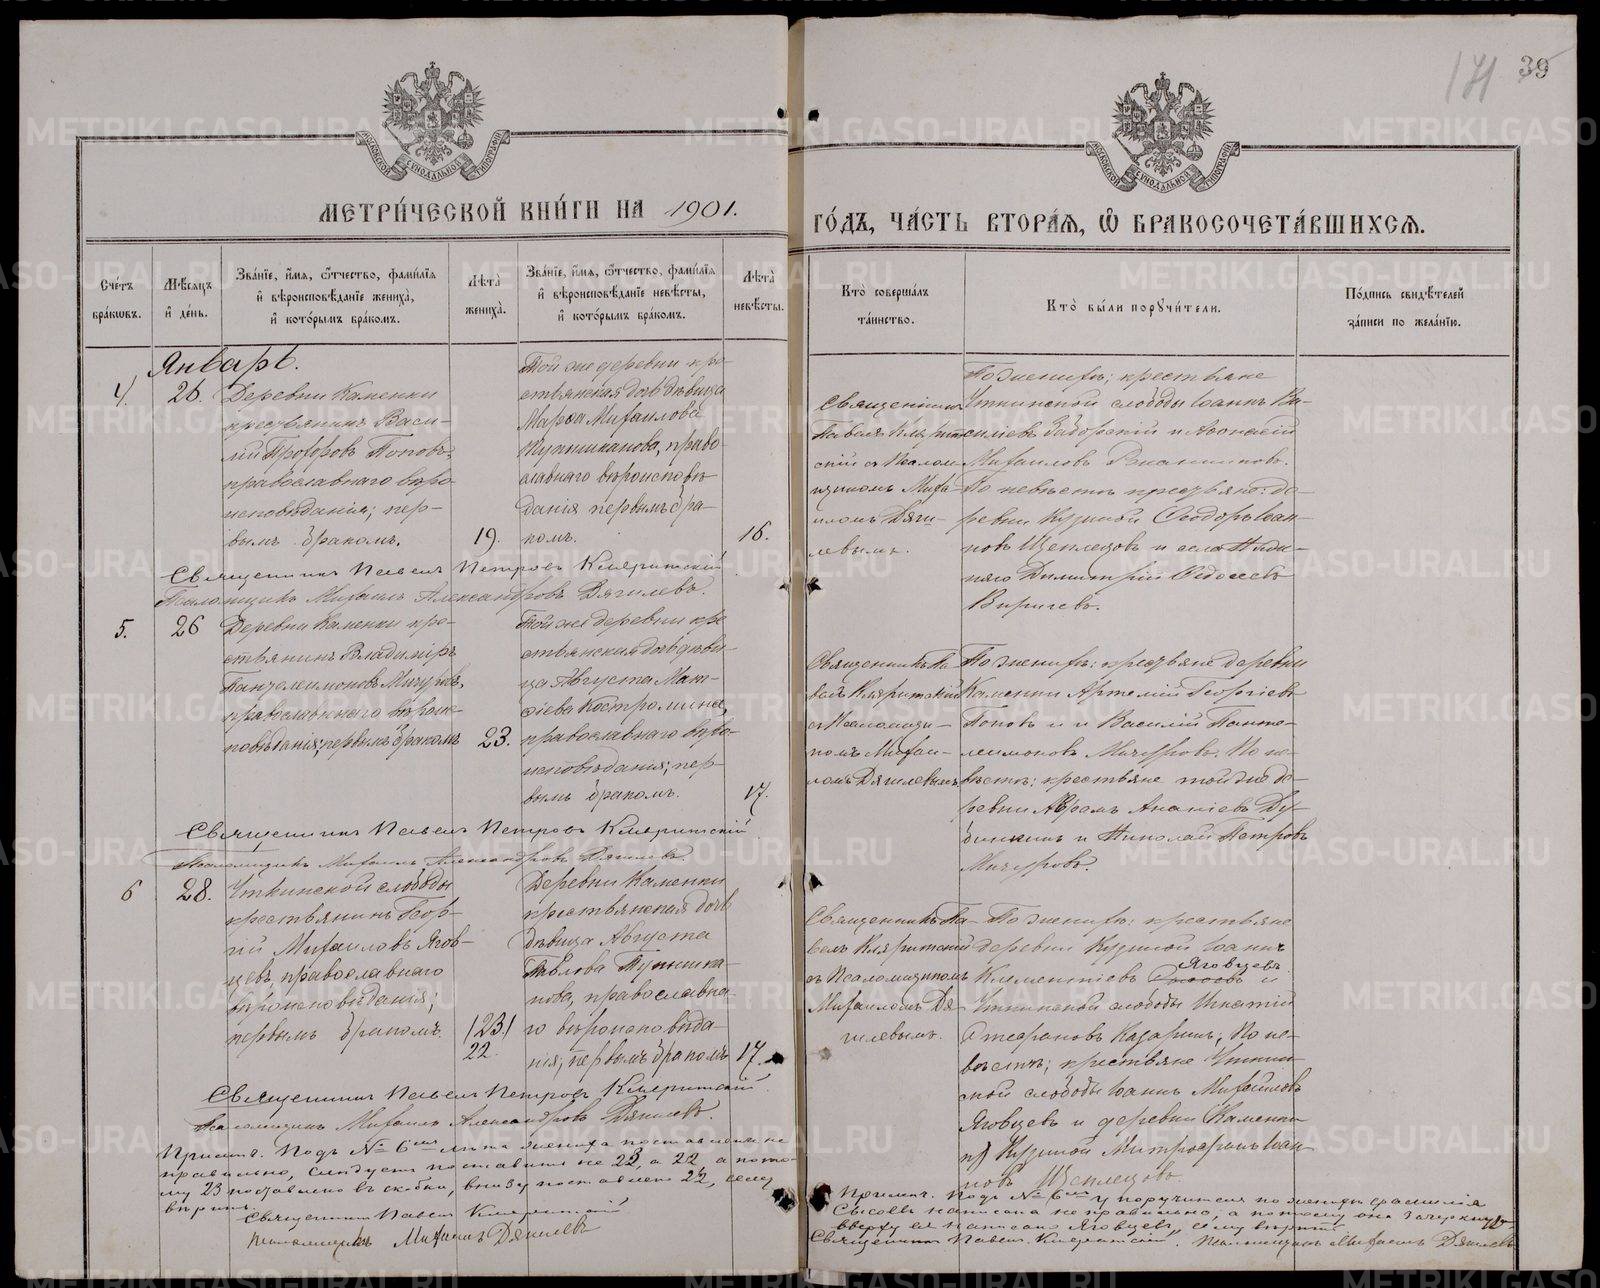 171 39
МЕТРИ́ЧЕСКОЙ КНИ́ГИ НА 1901.
ГО́ДЪ, ЧА́СТЬ ВТОРА́Ѧ, Ѽ БРАКОСОЧЕТА́ВШИХСѦ.
МОСКОВСКОЙ СѴНОДАЛЬНОЙ ТИПОГРАФІИ
МОСКОВСКОЙ СѴНОДАЛЬНОЙ ТИПОГРАФІИ
Сче́тъ бра́кѡвъ.
Мѣ́сѧцъ и҆ де́нь.
Зва́нїе, и҆́мѧ, ѻ҆́тчество, фамі́лїѧ и҆ вѣроисповѣ́данїе жениха̀, и҆ кото́рымъ бра́комъ.
Лѣ́та жениха̀.
Зва́нїе, и҆́мѧ, ѻ҆́тчество, фамі́лїѧ и҆ вѣроисповѣ́данїе невѣ́сты, и҆ кото́рымъ бра́комъ.
Лѣ́та невѣ́сты.
Кто̀ соверша́лъ та́инство.
Кто̀ бы́ли порꙋчи́тели.
По́дпись свидѣ́телей за́писи по жела́нїю.
Январь.
4.
26.
Деревни Каменки
крестьянинъ Васи-
лій Прохоровъ Поповъ,
православнаго вѣро-
исповѣданія; пер-
вымъ бракомъ.
19.
Той же деревни кре-
стьянская дочь дѣвица
Марѳа Михаилова
православнаго вѣроисповѣ-
данія первымъ бра-
комъ.
16.
Священникъ
Павелъ
скій съ Псалом-
щикомъ Миха-
иломъ Дяги-
левымъ.
По женихѣ: крестьяне
Уткинской слободы Іоаннъ Ва-
сильевъ и Аѳонасій
Михаиловъ
По невѣстѣ крестьяне: де-
ревни Кузиной Ѳеодоръ Іоан-
новъ Щеплецовъ и села
Димитрій
Священникъ Павелъ Петровъ
Псаломщикъ Михаилъ Александровъ Дягилевъ.
5.
26
Деревни Каменки кре-
стьянинъ Владиміръ
Пантелеимоновъ Мичуровъ,
православнаго вѣроис-
повѣданія; первымъ бракомъ
23.
Той же деревни кре-
стьянская дочь дѣви-
ца Августа Мат-
ѳіева Костромина,
православнаго вѣро-
исповѣданія; пер-
вымъ бракомъ.
17.
Священникъ Па-
велъ
съ Псаломщи-
комъ Михаи-
ломъ Дягилевымъ
По женихѣ: крестьяне деревни
Каменки Артемій Георгіевъ
Поповъ и Василій Панте-
леимоновъ Мичуровъ. По не-
вѣстѣ: крестьяне той же де-
ревни Аврамъ Ананіевъ
и Николай Петровъ
Мичуровъ.
Священникъ Павелъ Петровъ
Псаломщикъ Михаилъ Александровъ Дягилевъ.
6
28.
Уткинской слободы
крестьянинъ Геор-
гій Михаиловъ Яговъ
цевъ, православнаго
вѣроисповѣданія;
первымъ бракомъ.
(23)
22.
Деревни Каменки
крестьянская дочь
дѣвица Августа
Павлова
православна-
го вѣроисповѣда-
нія; первымъ бракомъ
17.
Священникъ Па-
велъ
съ Псаломщикомъ
Михаиломъ Дя-
гилевымъ.
По женихѣ: крестьяне
деревни Кузиной Іоаннъ
Климентіевъ Яговцевъ и
Уткинской слободы Игнатій
Стефановъ Казаринъ; По не-
вѣстѣ; крестьяне Уткин-
ской слободы Іоаннъ Михаиловъ
Яговцевъ и деревни
Кузиной Митрофанъ Іоан-
новъ Щеплецовъ.
Священникъ Павелъ Петровъ
Псаломщикъ Михаилъ Александровъ Дягилевъ.
Примѣч. Подъ № 6мъ лѣта жениха поставлены не
правильно, слѣдуетъ поставить не 23, а 22, а пото-
му 23 поставлено въ скобки, внизу поставлено 22, сему
вѣримъ.
Священникъ Павелъ
Псаломщикъ Михаилъ Дягилевъ
Примѣч. Подъ № 6мъ у поручителя по женихѣ фамилія
Сысоевъ написана не правильно, а потому она зачеркнута
вверху ея написано Яговцевъ, сему вѣримъ
Священникъ Павелъ Псаломщикъ Михаилъ Дягилевъ
METRIKI.GASO-URAL.RU